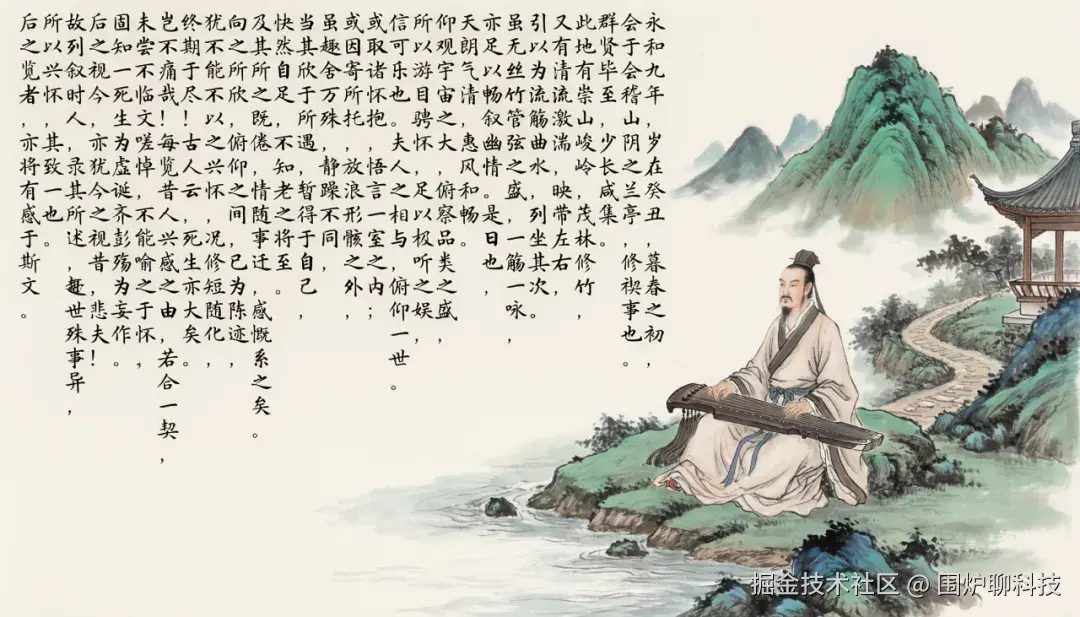 永和九年，岁在癸丑，暮春之初，
会于会稽山阴之兰亭，修禊事也。
群贤毕至，少长咸集。
此地有崇山峻岭，茂林修竹，
又有清流激湍，映带左右，
引以为流筋曲水，列坐其次。
虽无丝竹管弦之盛，一筋一咏，
亦足以畅叙幽情。是日也，
天朗气清，惠风和畅。
仰观宇宙之大，俯察品类之盛，
所以游目骋怀，足以极听之娱，
信可乐也。夫人之相与，俯仰一世。
或取诸怀抱，悟言一室之内；
或因寄所托，放浪形骸之外，
虽趣舍万殊，静躁不同，
当其欣于所遇，暂得于自己，
快然自足，不知老之将至。
及其所之既倦，情随事迁，感慨系之矣。
向之所欣，俯仰之间，已为陈迹，
犹不能不以之兴怀，况修短随化，
终期于尽！古人云，死生亦大矣。
岂不痛哉！每览昔人兴感之由，若合一契，
未尝不临文嗟悼，不能喻之于怀，
固知一死生为虚诞齐彭殇为妄作。
后之视今，亦犹今之视昔，悲夫！
故列叙时人，录其所述，趣世殊事异，
所以兴怀，其致一也。
后之览者，亦将有感于斯文。
掘金技术社区 @ 围炉聊科技